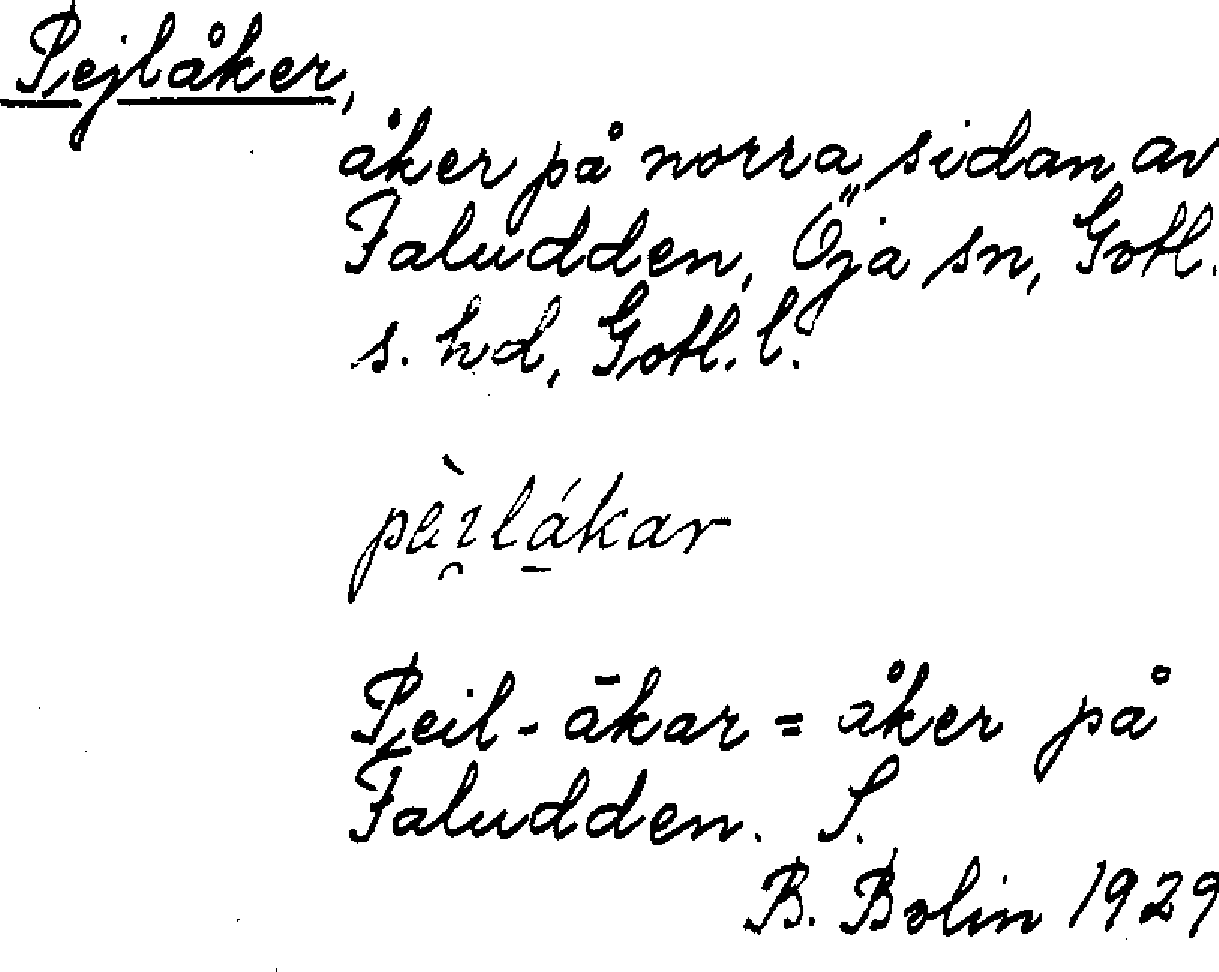 Pejlåker,
åker på norra sidan av
Faludden, Öja sn, Gotl.
s. hd, Gotl. l.
pèi̯lá̱kar
Peil-ākar = åker på
Faludden. S.
B. Bolin 1929